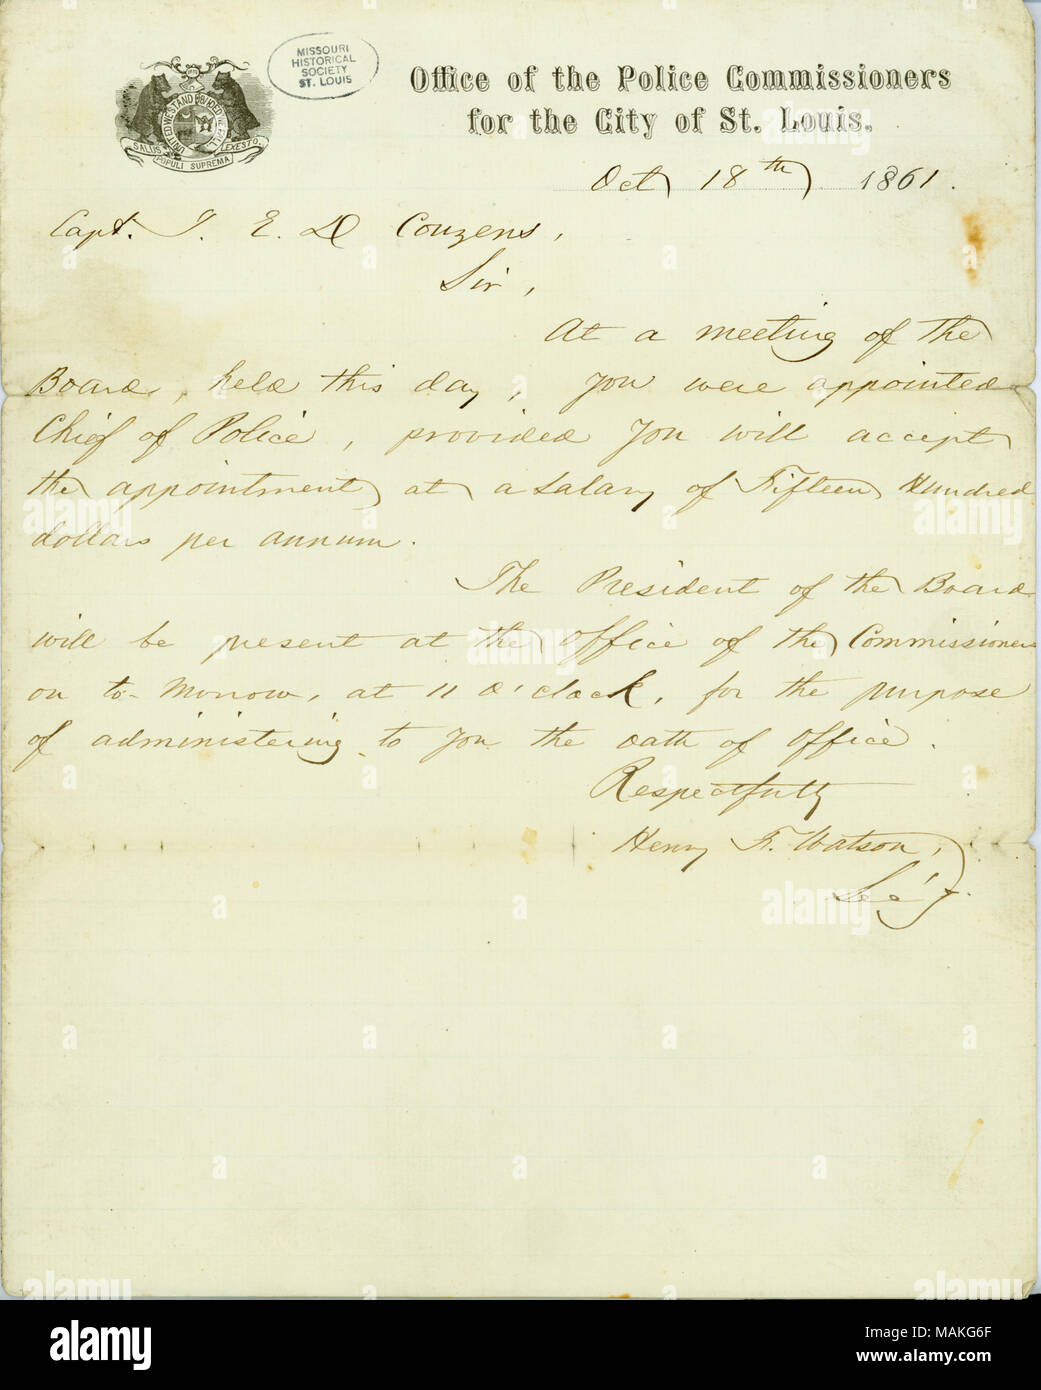 MISSOURI
HISTORICAL
SOCIETY
ST. LOUIS
UNITED WE STAND DIVIDED WE FALL
SALUS POPULI SUPREMA LEX ESTO.
Office of the Police Commissioners
for the City of St. Louis.
Oct 18th 1861.
Capt. J. E. D Couzens,
Sir,
At a meeting of the
Board, held this day, you were appointed
Chief of Police, provided you will accept
the appointment at a Salary of Fifteen Hundred
dollars per annum.
The President of the Board
will be present at the office of the Commissioners
on to-morrow, at 11 O'clock, for the purpose
of administering to you the oath of office.
Respectfully
Henry F. Watson,
Sec'y.
alamy
Image ID: MAKG6F
www.alamy.com